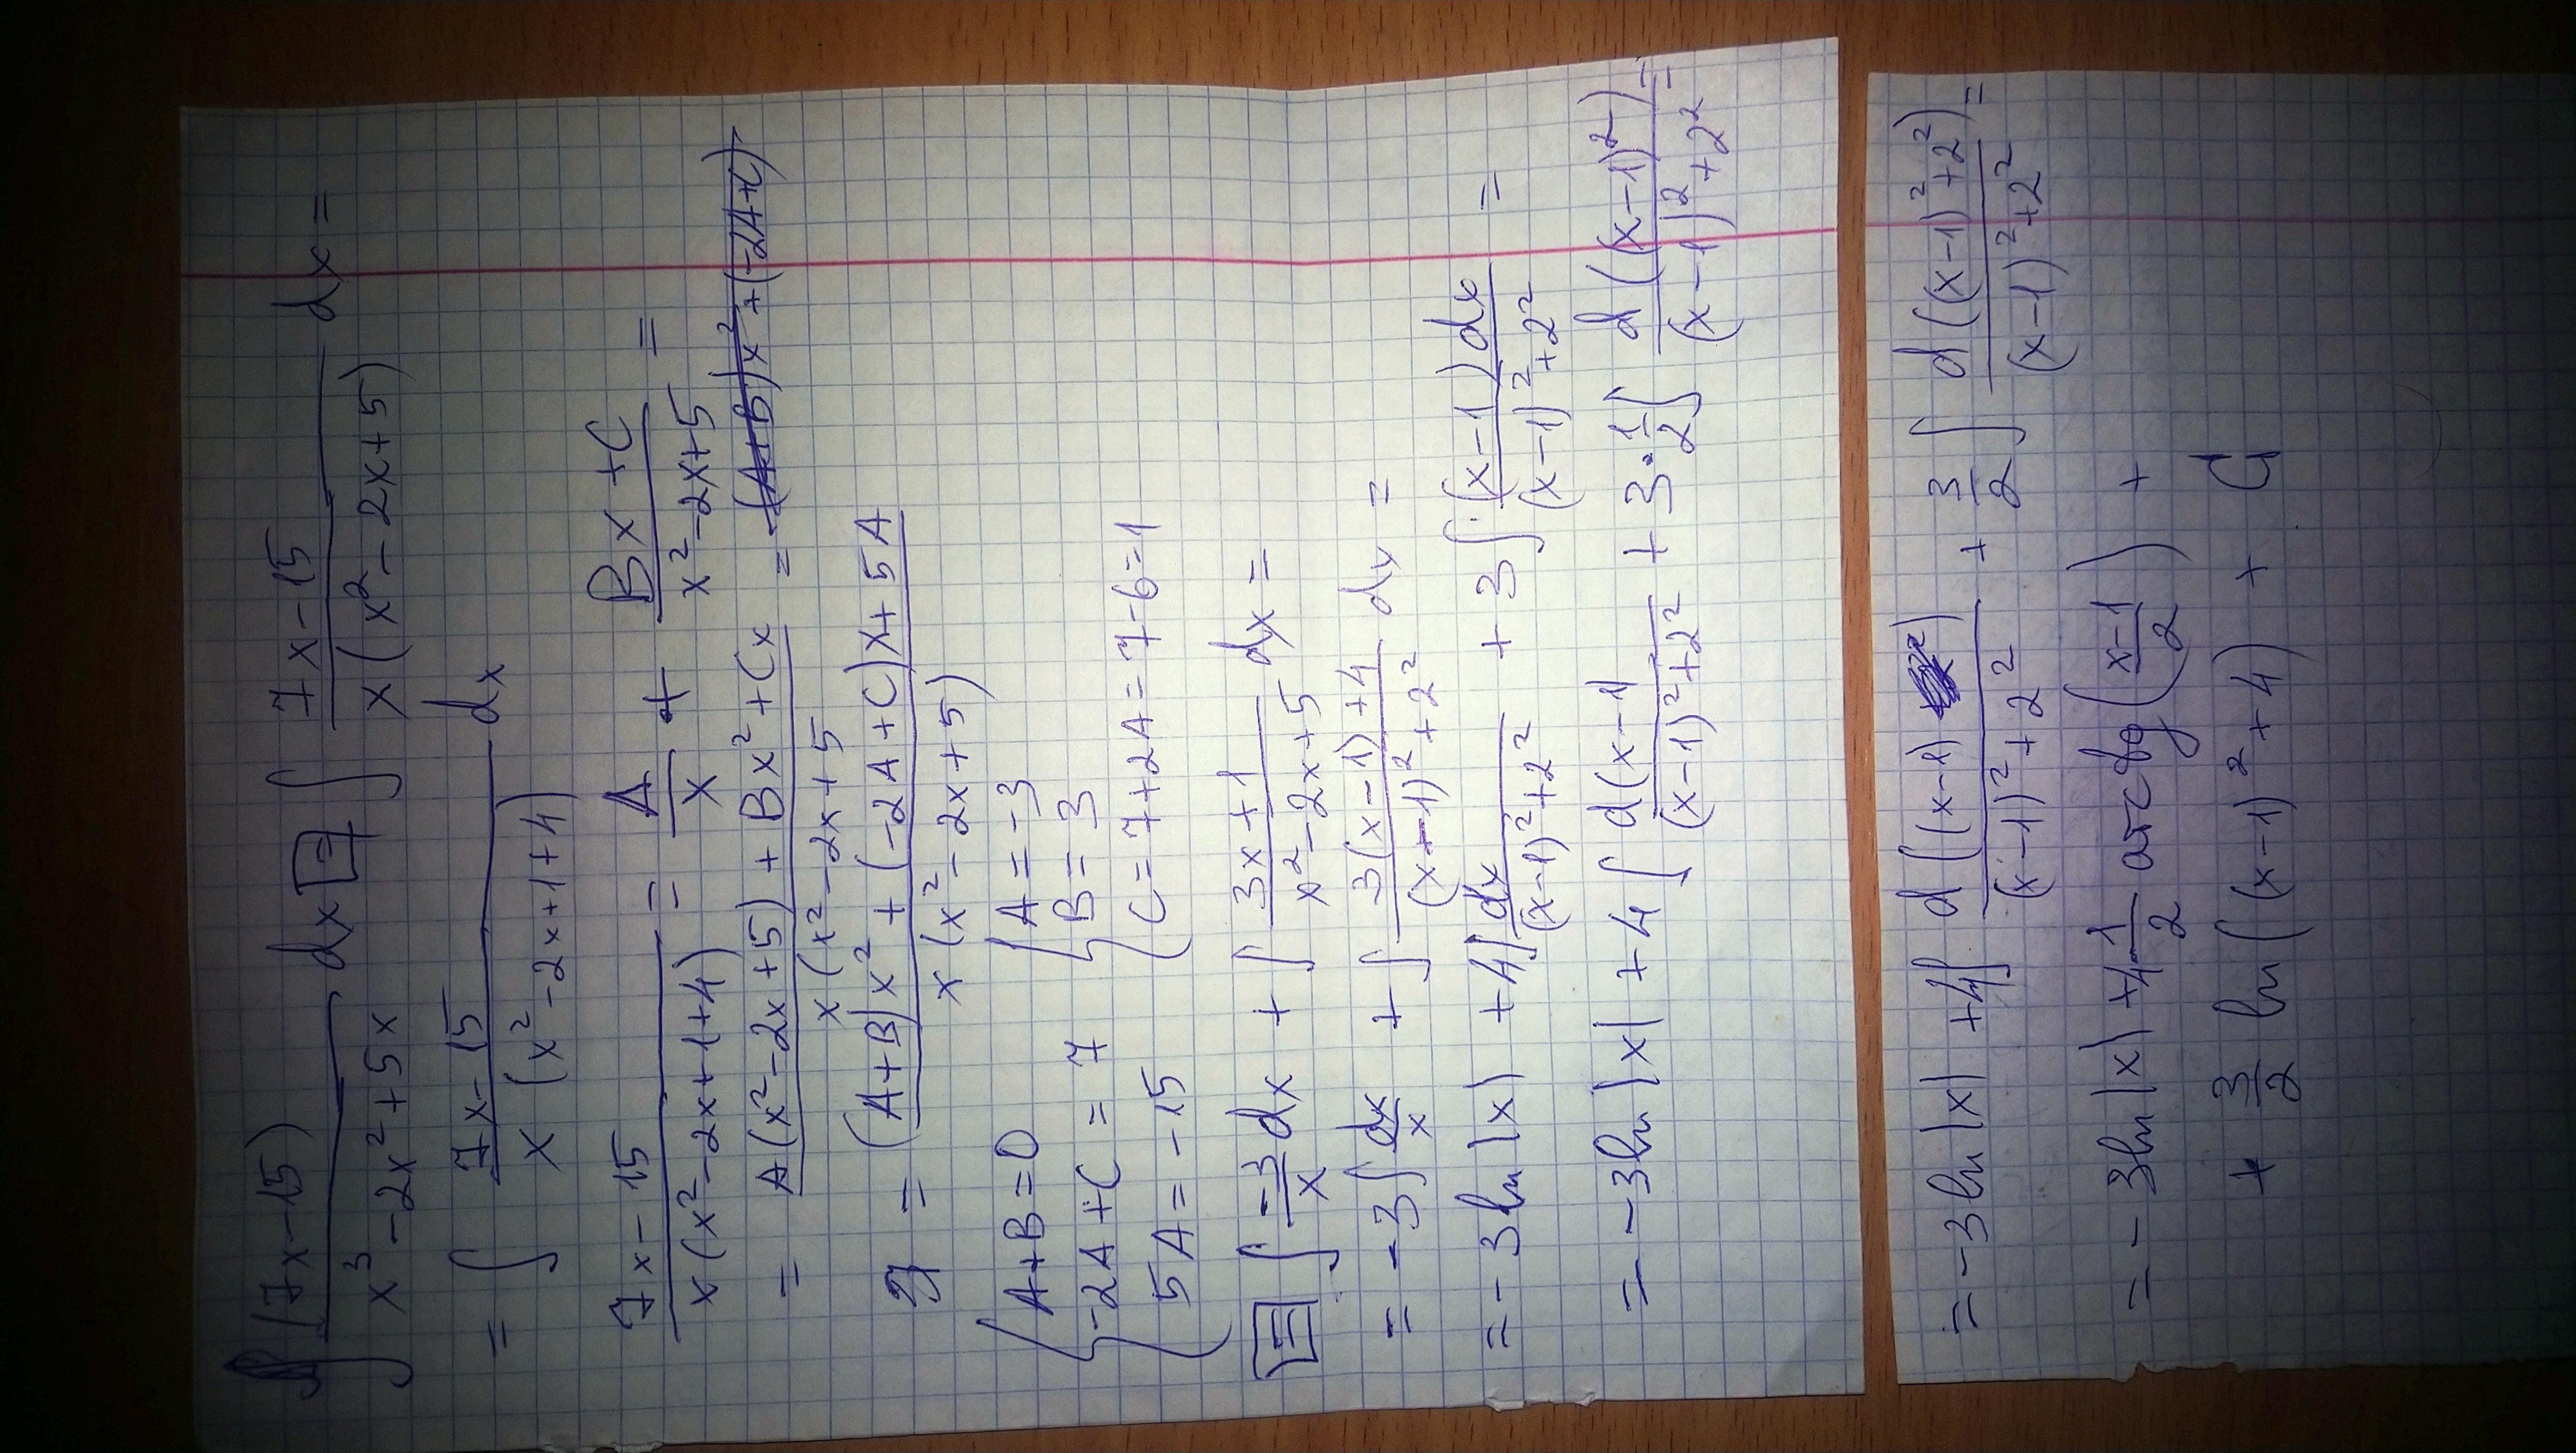 ∫ (7x-15)/(x³-2x²+5x) dx ⊟ ∫ (7x-15)/(x(x²-2x+5)) dx =
= ∫ (7x-15)/(x(x²-2x+1+4)) dx
(7x-15)/(x(x²-2x+1+4)) = A/x + (Bx+C)/(x²-2x+5) =
= (A(x²-2x+5)+Bx²+Cx)/(x(x²-2x+5) =
= ((A+B)x²+(-2A+C)x+5A)/(x(x²-2x+5))
{ A+B=0 { A=-3
{ -2A+C=7 { B=3
{ 5A=-15 { C=7+2A=7-6=1
⊟ ∫ -3/x dx + ∫ (3x+1)/(x²-2x+5) dx =
= -3∫ dx/x + ∫ (3(x-1)+4)/((x-1)²+2²) dx =
= -3ln|x| + 4∫ dx/((x-1)²+2²) + 3∫ ((x-1)dx)/((x-1)²+2²) =
= -3ln|x| + 4∫ d(x-1)/((x-1)²+2²) + 3·1/2∫ d((x-1)²)/((x-1)²+2²) =
= -3ln|x| + 4∫ d((x-1))/((x-1)²+2²) + 3/2∫ d((x-1)²+2²)/((x-1)²+2²) =
= -3ln|x| + 4·1/2 arctg((x-1)/2) +
+ 3/2 ln((x-1)²+4) + C